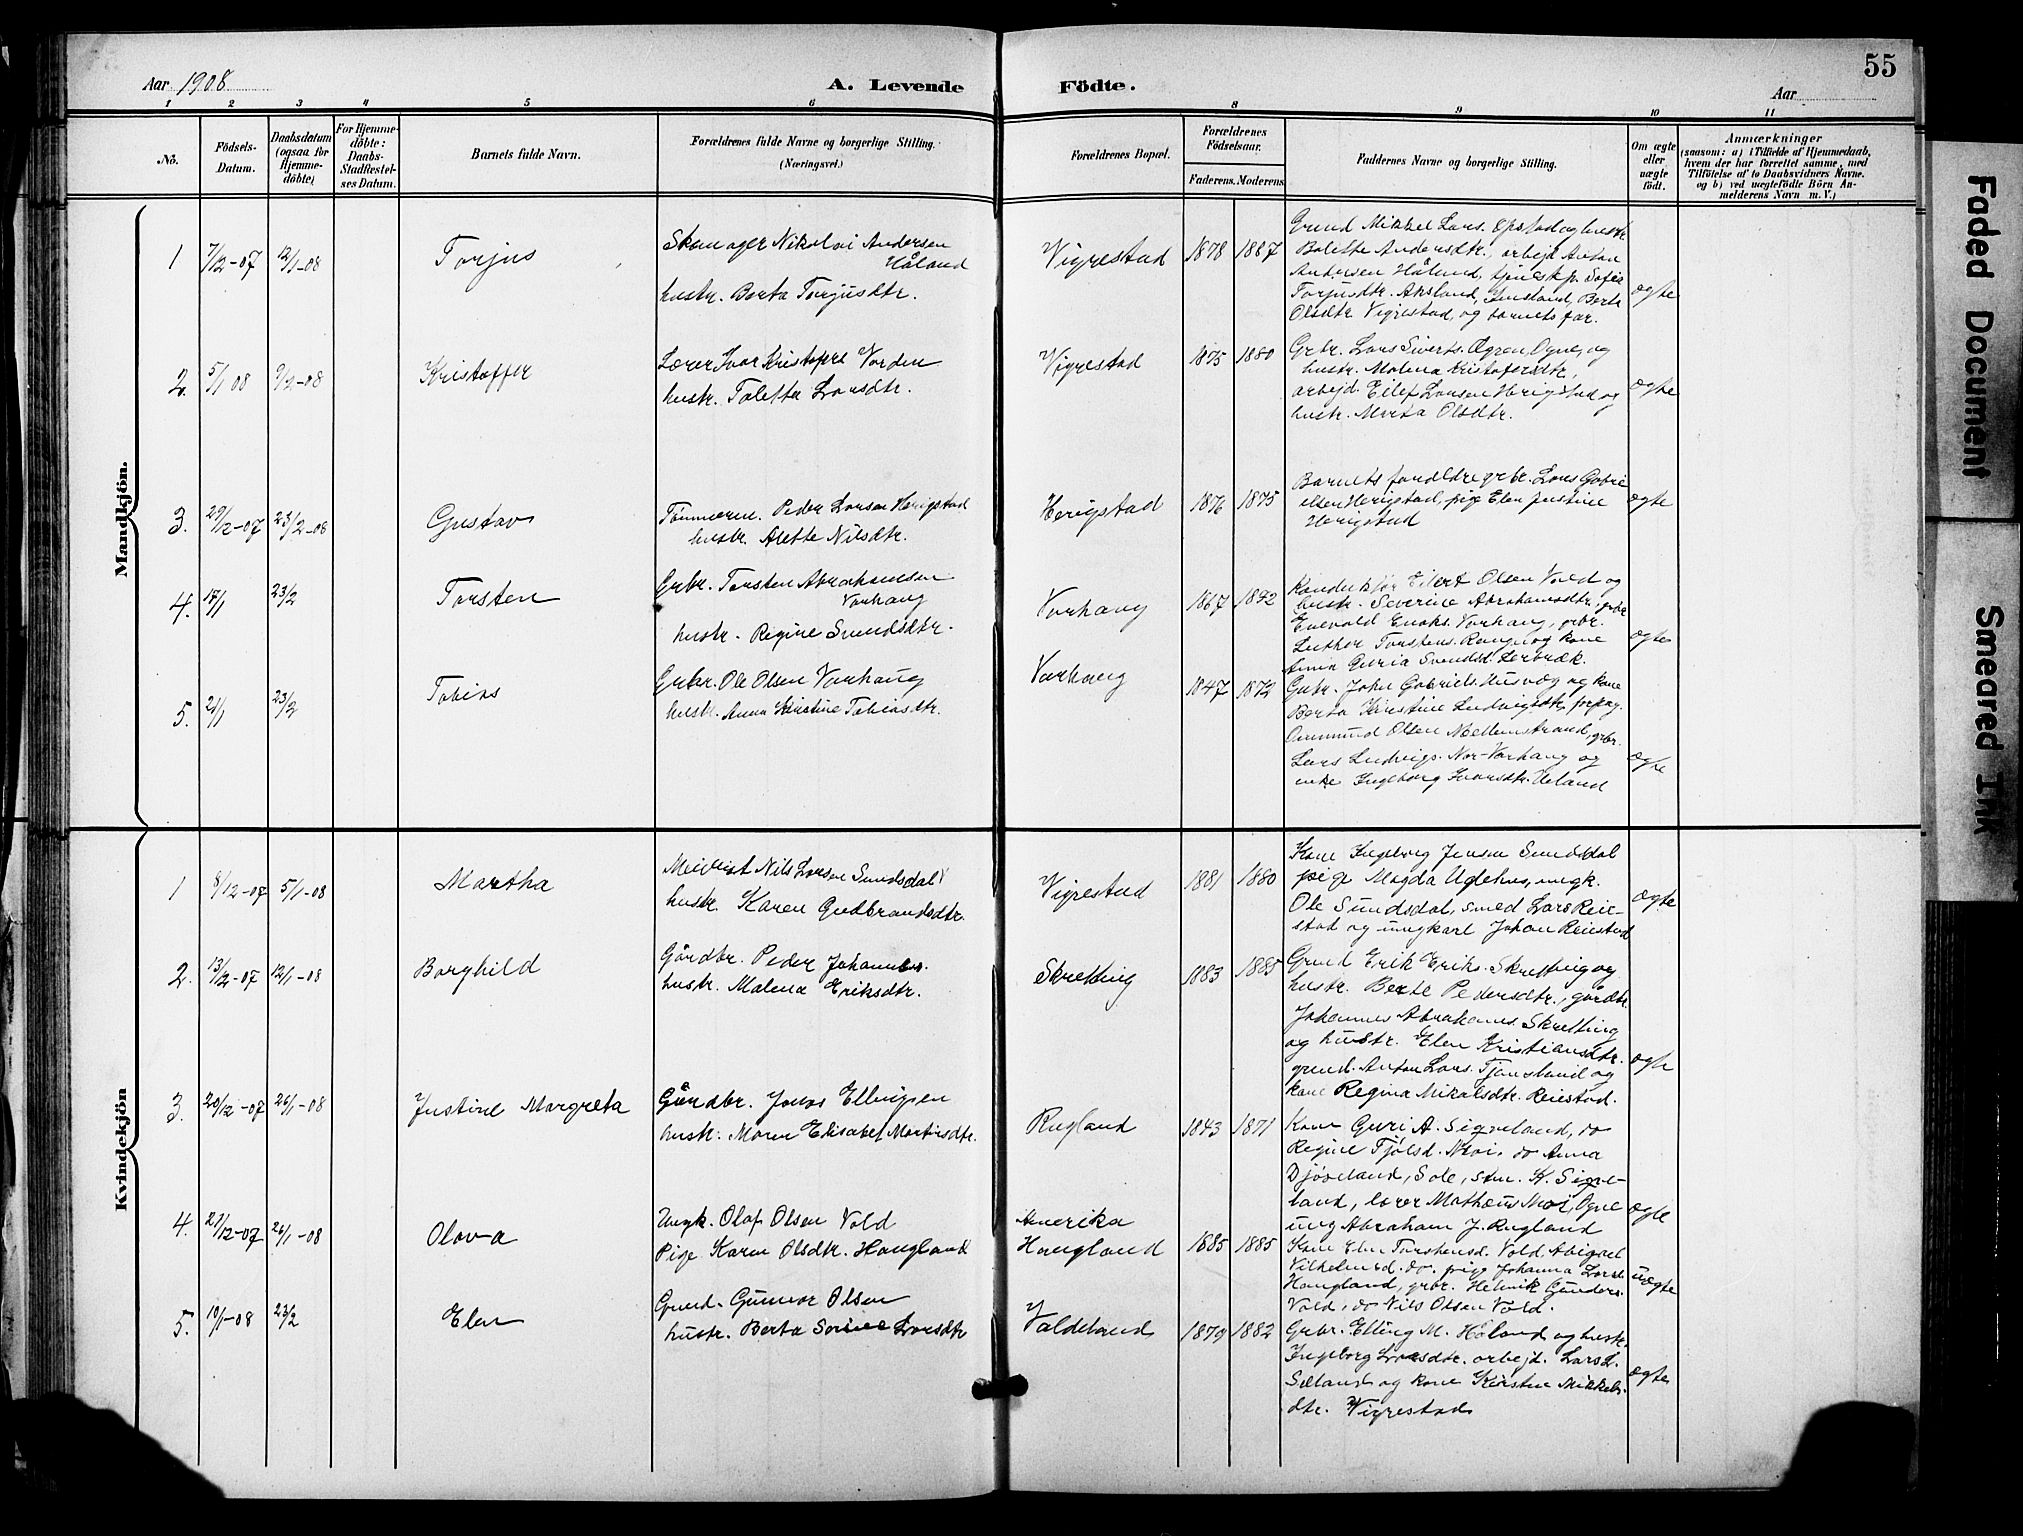 Aar 1908
A. Levende Födte.
55
Aar
1 2 3 4 5 6 8 9 10 11
No.
Födsels-Datum.
Daabsdatum (ogsaa for Hjemme-döbte)
For Hjemme-döbte: Daabs-Stadfæstel-ses Datum.
Barnets fulde Navn.
Forældrenes fulde Navne og borgerlige Stilling. (Næringsvei.)
Forældrenes Bopæl.
Forældrenes Födselsaar.
Faderens. Moderens.
Faddernes Navne og borgerlige Stilling.
Om ægte eller uægte födt.
Anmærkninger
(saasom: a) i Tilfælde af Hjemmedaab,
hvem der har forrettet samme, med
Tilföielse af to Daabsvidners Navne.
og b) ved uægtefödte Börn An-
melderens Navn m. V.)
Mandkjön.
1 7/12-07 12/1-08 Torjus
Skomager Nikolai Andersen
Håland
hustr. Berta Torjusdtr.
Vigrestad 1878 1887
Grund Mikkel Lars. Opstad og hustr.
Bolette Andersdtr., arbejd Anton
Andersen Håland, tjenestp. Sofie
Torjusdtr. Aksland, Berte
Olsdtr. Vigrestad, og barnets far.
ægte
2. 5/1 08 9/2-08 Kristoffer
Lærer Ivar Kristofers Vorden
hustr. Taletta Larsdtr.
Vigrestad 1875 1880
Grbr. Lars Siverts. Ogne, og
hustr. Malena Kristofersdtr.,
arbejd. Eilef Larsen Herigstad og
hustr. Marta Olsdtr.
ægte
3. 29/12-07 23/2-08 Gustav
Tömmerm. Peder Larsen Herigstad
hustr. Alette Nilsdtr.
Herigstad 1876 1875
Barnets foreldre grbr. Lars Gabri-
elsen Herigstad, pige Elen Justine
Herigstad
ægte
4. 17/1 23/2 Torsten
Grbr. Torsten Abrahamsen
Varhaug
hustr. Regine Svendsdtr.
Varhaug 1867 1872
Konduktør Eilert Olsen Vold og
hustr. Severine Abrahamsdtr., grbr
Enevald Enoks. Varhaug, grbr.
Luther Torstens. og kone
Anna Guria Svendsd. Lerbræk.
ægte
5. 21/1 23/2 Tobias
Grbr. Ole Olsen Varhaug
hustr. Anna Kirstine Tobiasdtr.
Varhaug 1847 1872
Grbr. John Gabriels. Husvæg og kone
Berta Kirstine Ludvigsdtr, forpag.
Ommund Olsen Mellemstrand, grbr.
Lars Ludvigs. Nor-Varhaug og
enke Ingeborg Ivarsdtr. Ueland
ægte
Kvindekjön
1 8/12-07 5/1-08 Martha
Meierist Nils Larsen Sundsdal
hustr. Karen Gudbrandsdtr.
Vigrestad 1881 1880
Kone Ingeborg Jensen Sundsdal
pige Magda Ueland, ungk.
Ole Sundsdal, smed Lars Reie-
stad og ungkarl Johan Reiestad
ægte
2. 13/12-07 12/1-08 Borghild
Gårdbr. Peder Johannes.
hustr. Malena Eriksdtr.
Skretting 1883 1885
Grund Erik Eriks. Skretting og
hustr. Berte Pedersdtr., gårdbr.
Johannes Abrahams. Skretting
og hustr. Elen Kristiansdtr.
grund. Anton Lars. Tjensland og
kone Regina Mikalsdtr. Reiestad.
ægte
3. 20/12-07 26/1-08 Justine Margreta
Gårdbr. Jonas Ellingsen
hustr. Maren Elisabet Martinsdtr.
Rugland 1843 1871
Kone Guri A. Sigveland, do
Regine Tjølsd. Moi, do Anna
Djøseland, Sole, søn. K. Sigve-
land, lærer Mathæus Moi, Ogne
ung Abraham J. Rugland
ægte
4. 27/12-07 26/1-08 Olava
Ungk. Olaf Olsen Vold
Pige Karen Olsdtr. Haugland
Amerika
Haugland 1885 1885
Kone Elen Torstensd. Vold, Abigael
Vilhelmsd. do. pige Johanna Larsd.
Haugland, grbr. Henrik Gunders.
Vold, do Nils Olsen Vold.
uægte
5. 10/1-08 23/2 Elen
Grund. Gunvor Olsen
hustr. Berta Sorine Larsdtr
Valdeland 1879 1882
Grbr. Elling M. Håland og hustr.
Ingeborg Larsdtr. arbejd. Lars L.
Sæland og kone Kirstine Mikkels-
dtr. Vigrestad
ægte
Faded Document
Smeared Ink